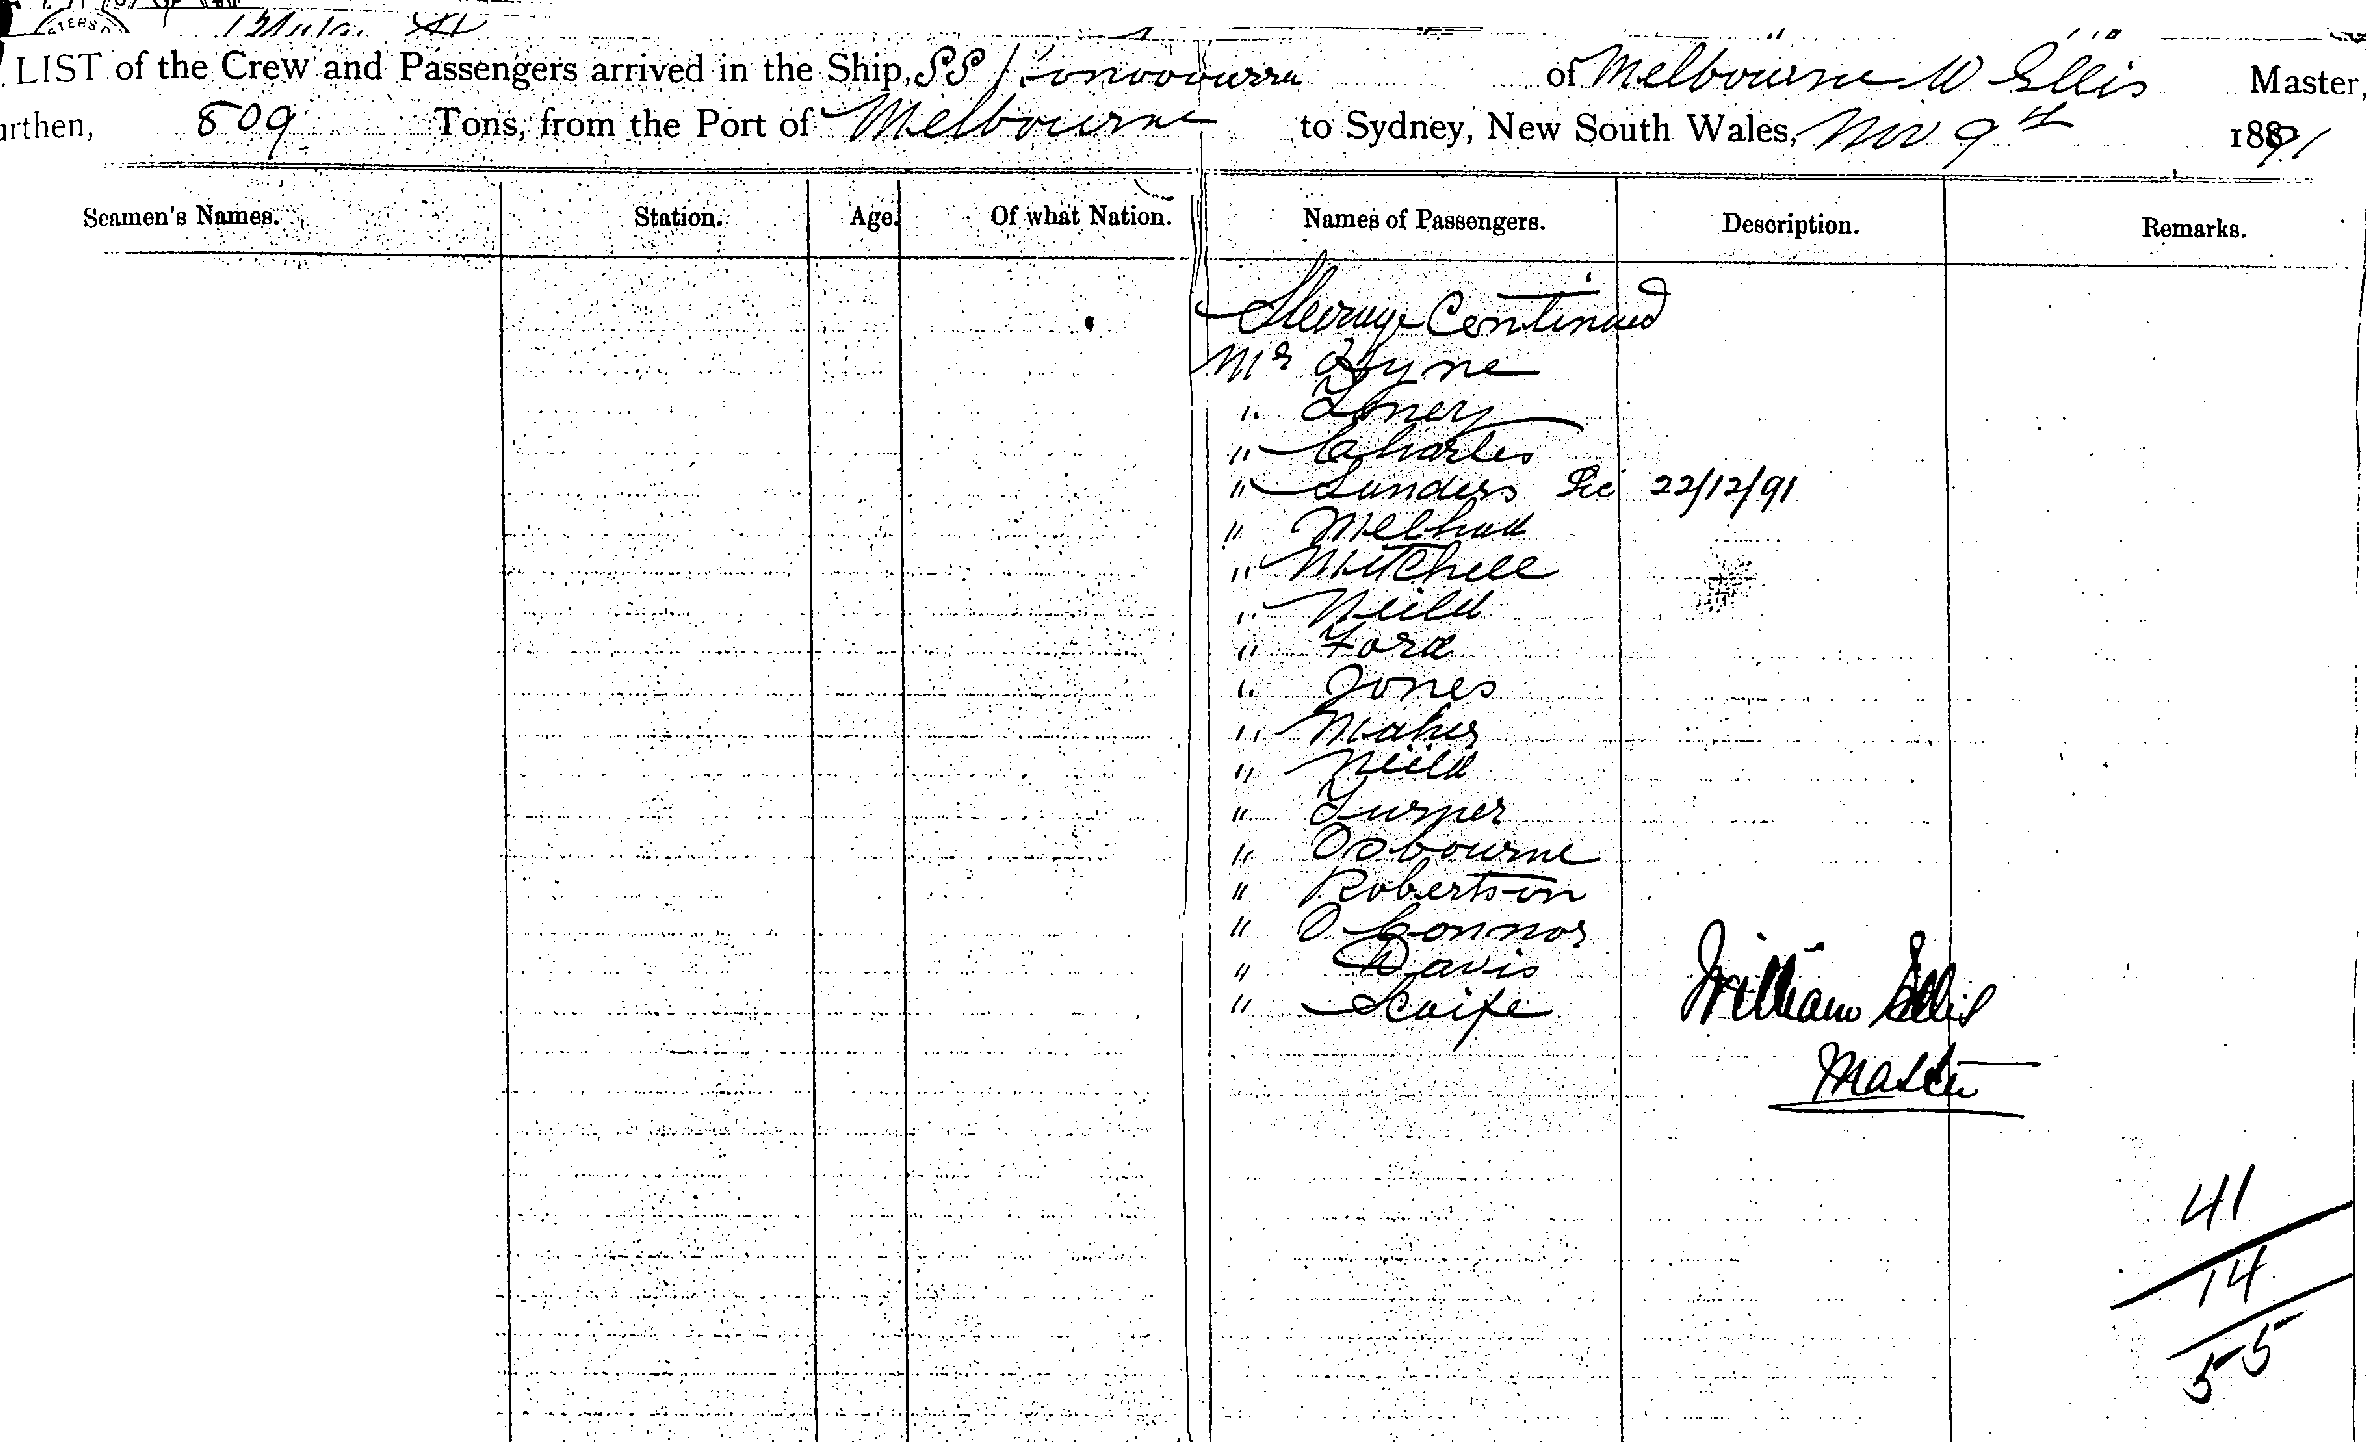 LIST of the Crew and Passengers arrived in the Ship, SS Konoowarra of Melbourne W Ellis Master,
urthen, 809 Tons, from the Port of Melbourne to Sydney, New South Wales, Nov 9th 1891
Seamen's Names. Station. Age. Of what Nation. Names of Passengers. Description. Remarks.
Steerage Continued
Mr Hyne
" Toney
" Charles
" Sanders 22/12/91
"
" Mitchell
" Neild
" Ford
" Jones
" Maher
" Neild
" Turner
" Osbourne
" Robertson
" O Connor
" Davis
" Scaife
William Ellis
Master
41
14
55